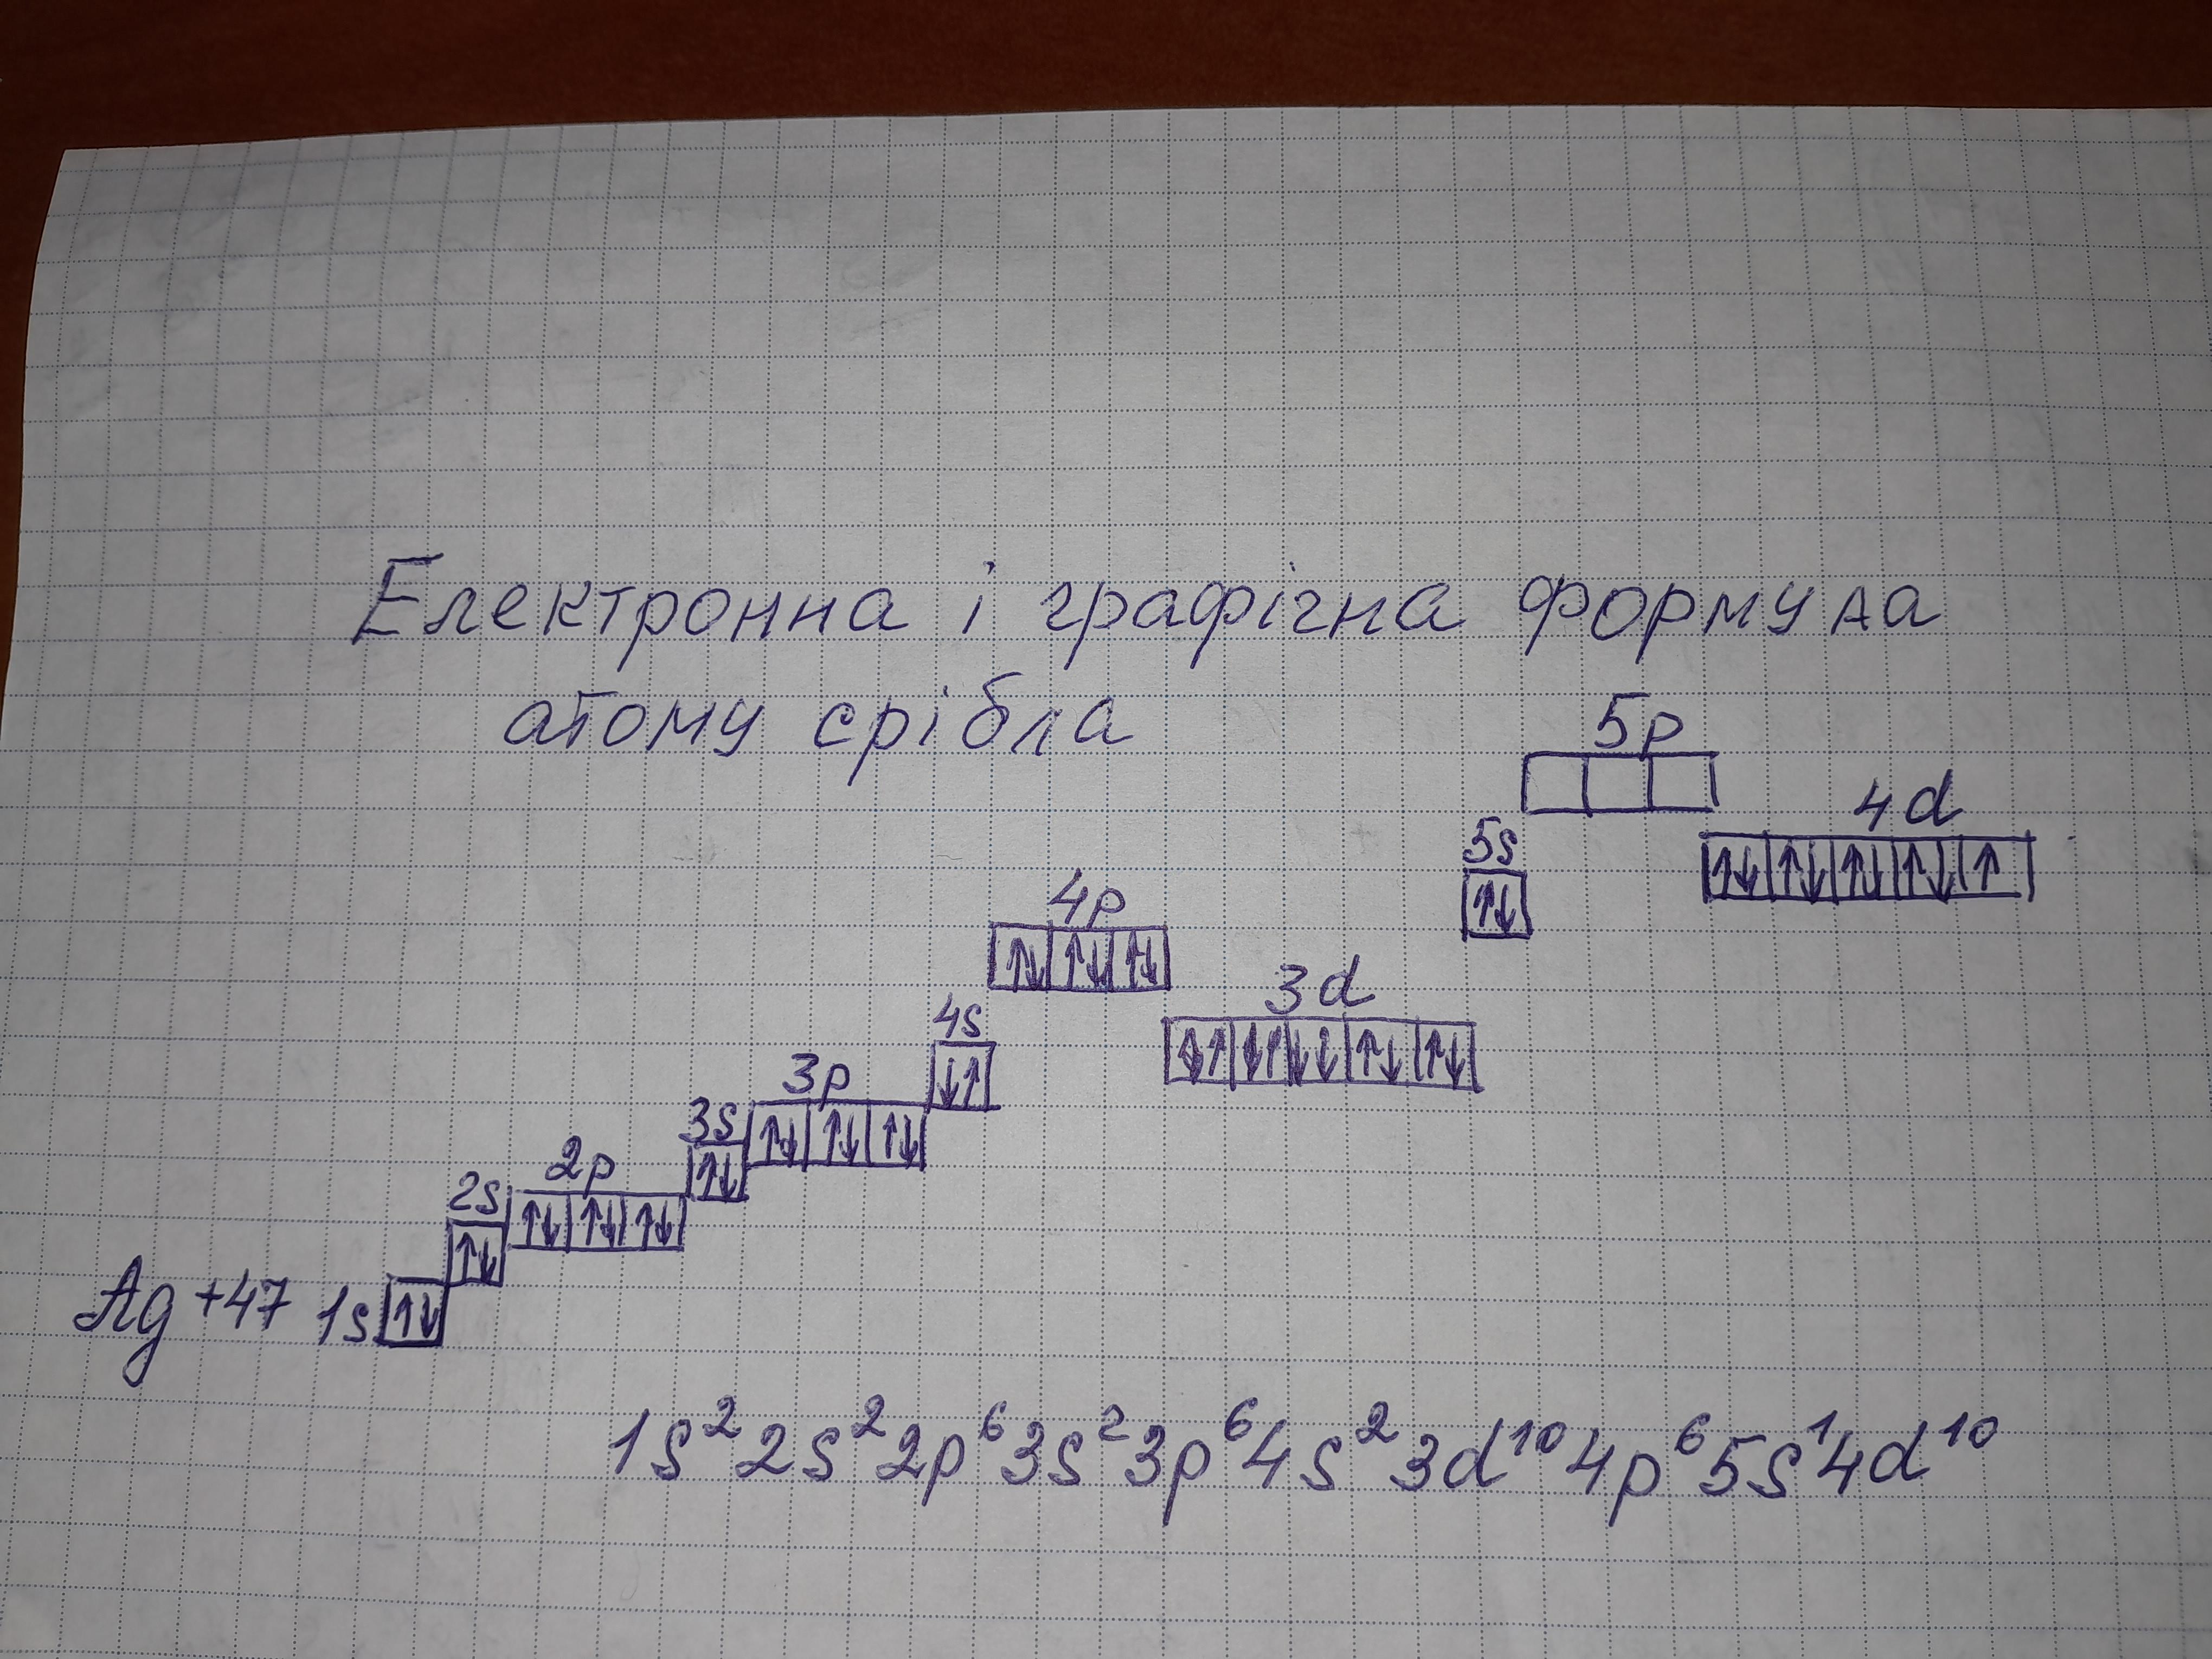 Електронна і графічна формула
атому срібла
5p
4d
5s
↑↓ ↑↓ ↑↓ ↑↓ ↑
4p
↑↓
↑↓ ↑↓ ↑↓
3d
4s
↑↓ ↑↓
3p
↓↑
3s
↑↓ ↑↓ ↑↓
2p
↑↓
2s
↑↓ ↑↓ ↑↓
↑↓
Ag +47 1s ↑↓
1s²2s²2p⁶3s²3p⁶4s²3d¹⁰4p⁶5s¹4d¹⁰